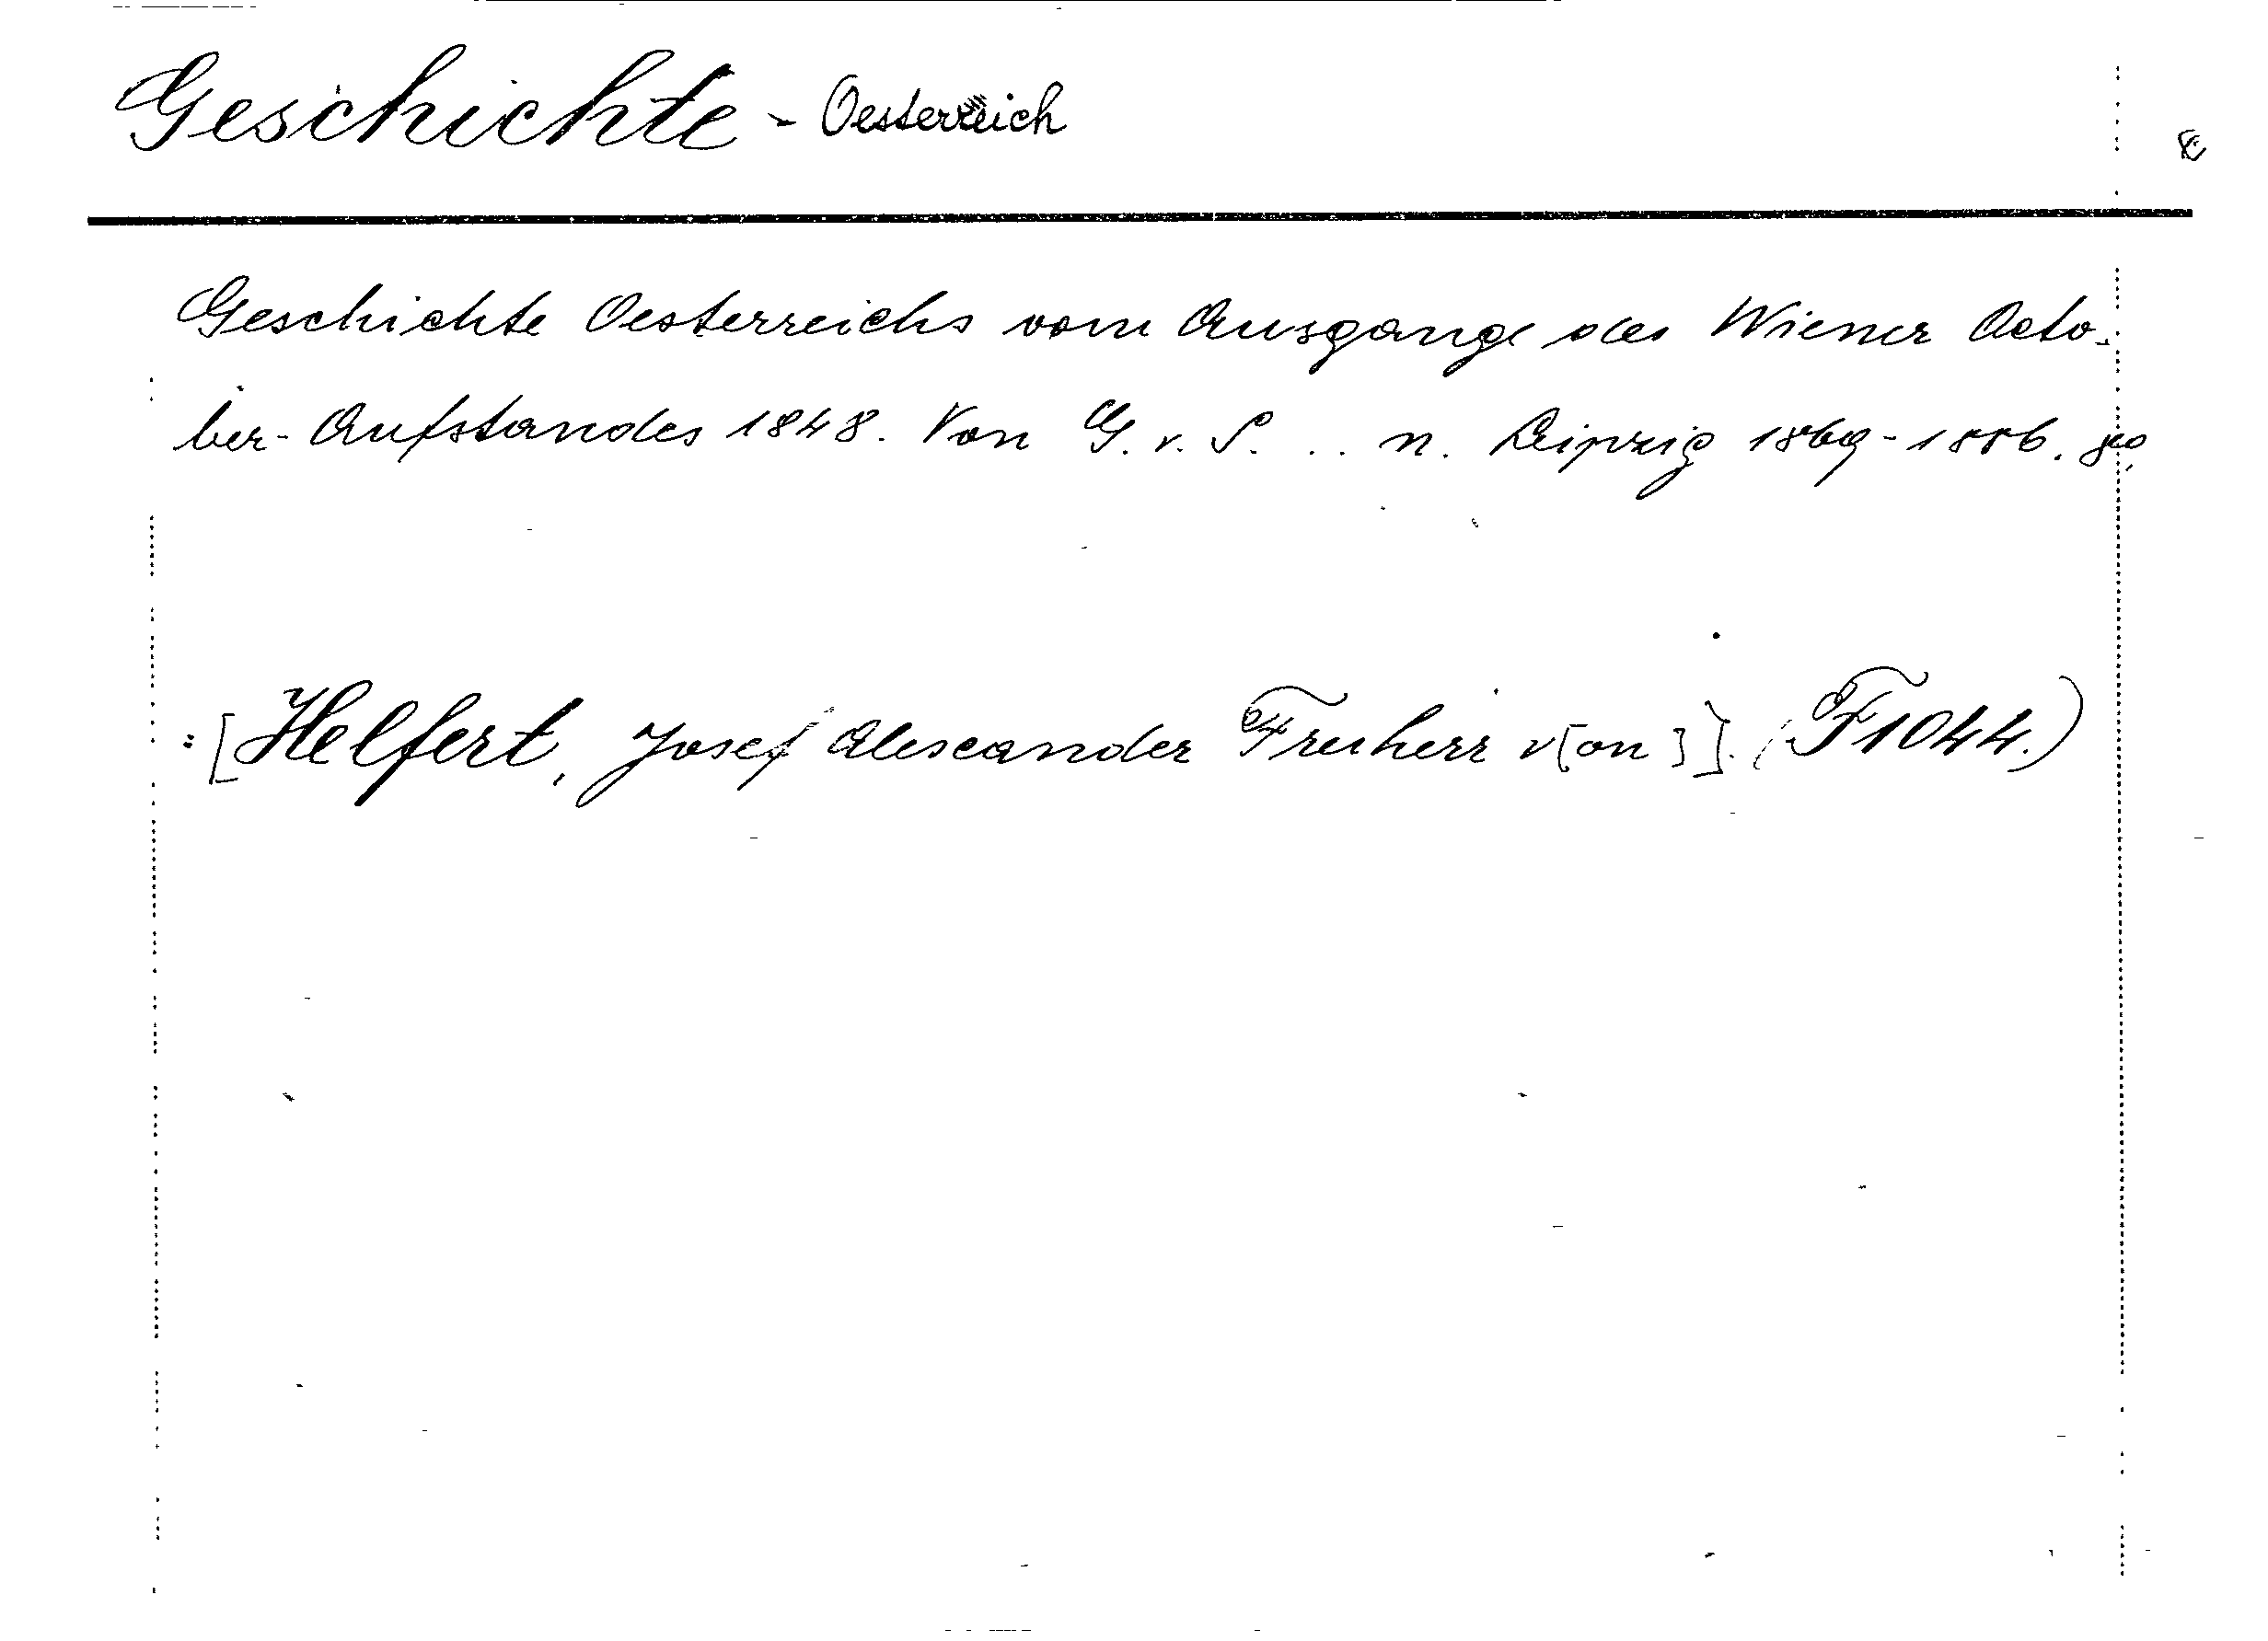 Geschichte - Oesterreich
Geschichte Oesterreichs vom Ausgange des Wiener Octo-
ber-Aufstandes 1848. Von G. v. S. .. n. Leipzig 1869-1886. 8°.
: [Helfert, Josef Alexander Freiherr v[on]]. (F1044.)